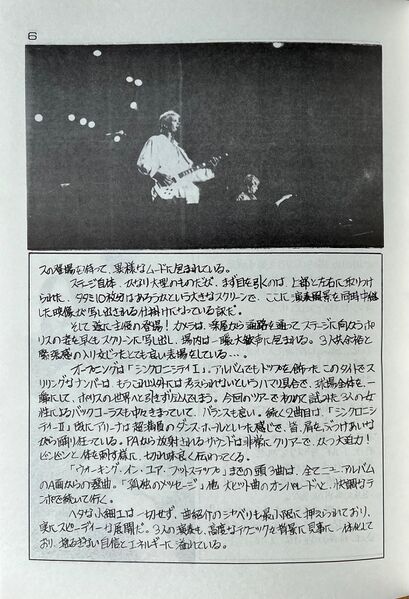 6
スの登場を待って、異様なムードに包まれている。
ステージ自体、かなり大型のものだが、まず目を引くのは、上部と左右に取りつけ
られた、タタミ10枚分はあろうかという大きなスクリーンで、ここに演奏風景を同時中継
した映像が写し出される仕掛けになっている訳だ。
そして遂に主役の登場！カメラは、楽屋から通路を通ってステージに向かうポリ
スの姿を早もスクリーンに写し出し、場内は一瞬大歓声に包まれる。3人共余裕と
緊張感の入りなじったとても良い表情をしている…。
オープニングは「シンクロニシティI」。アルバムでもトップを飾ったこのタイトでス
リリングなナンバーは、もうこれ以外には考えられないというハマリ具合で、球場全体を、一
瞬にして、ポリスの世界へと引きずり込んでしまう。今回のツアーで初めて試みた3人の女
性によるバックコーラスも中々きまっていて、バランスも良い。続く2曲目は、「シンクロニシ
ティーII」。既にアリーナは超満員のダンス・ホールといった感じで、皆、肩をぶつけあいな
がら踊り狂っている。PAから放射されるサウンドは非常にクリアーで、かつ大迫力！
ビンビンと体を刺す様に、切れ味良く伝わってくる。
「ウォーキング・イン・ユア・フットステップス」までの頭3曲は、全てニュー・アルバム
のA面からの選曲。「孤独のメッセージ」他 大ヒット曲のオンパレードへと、快調なテ
ンポで続いて行く。
ヘタな小細工は一切せず、曲紹介のシャベリも最小限に押えられており、
実にスピーディーな展開だ。3人の演奏も、高度なテクニックを背景に見事に一体化して
おり、揺るぎない自信とエネルギーに溢れている。